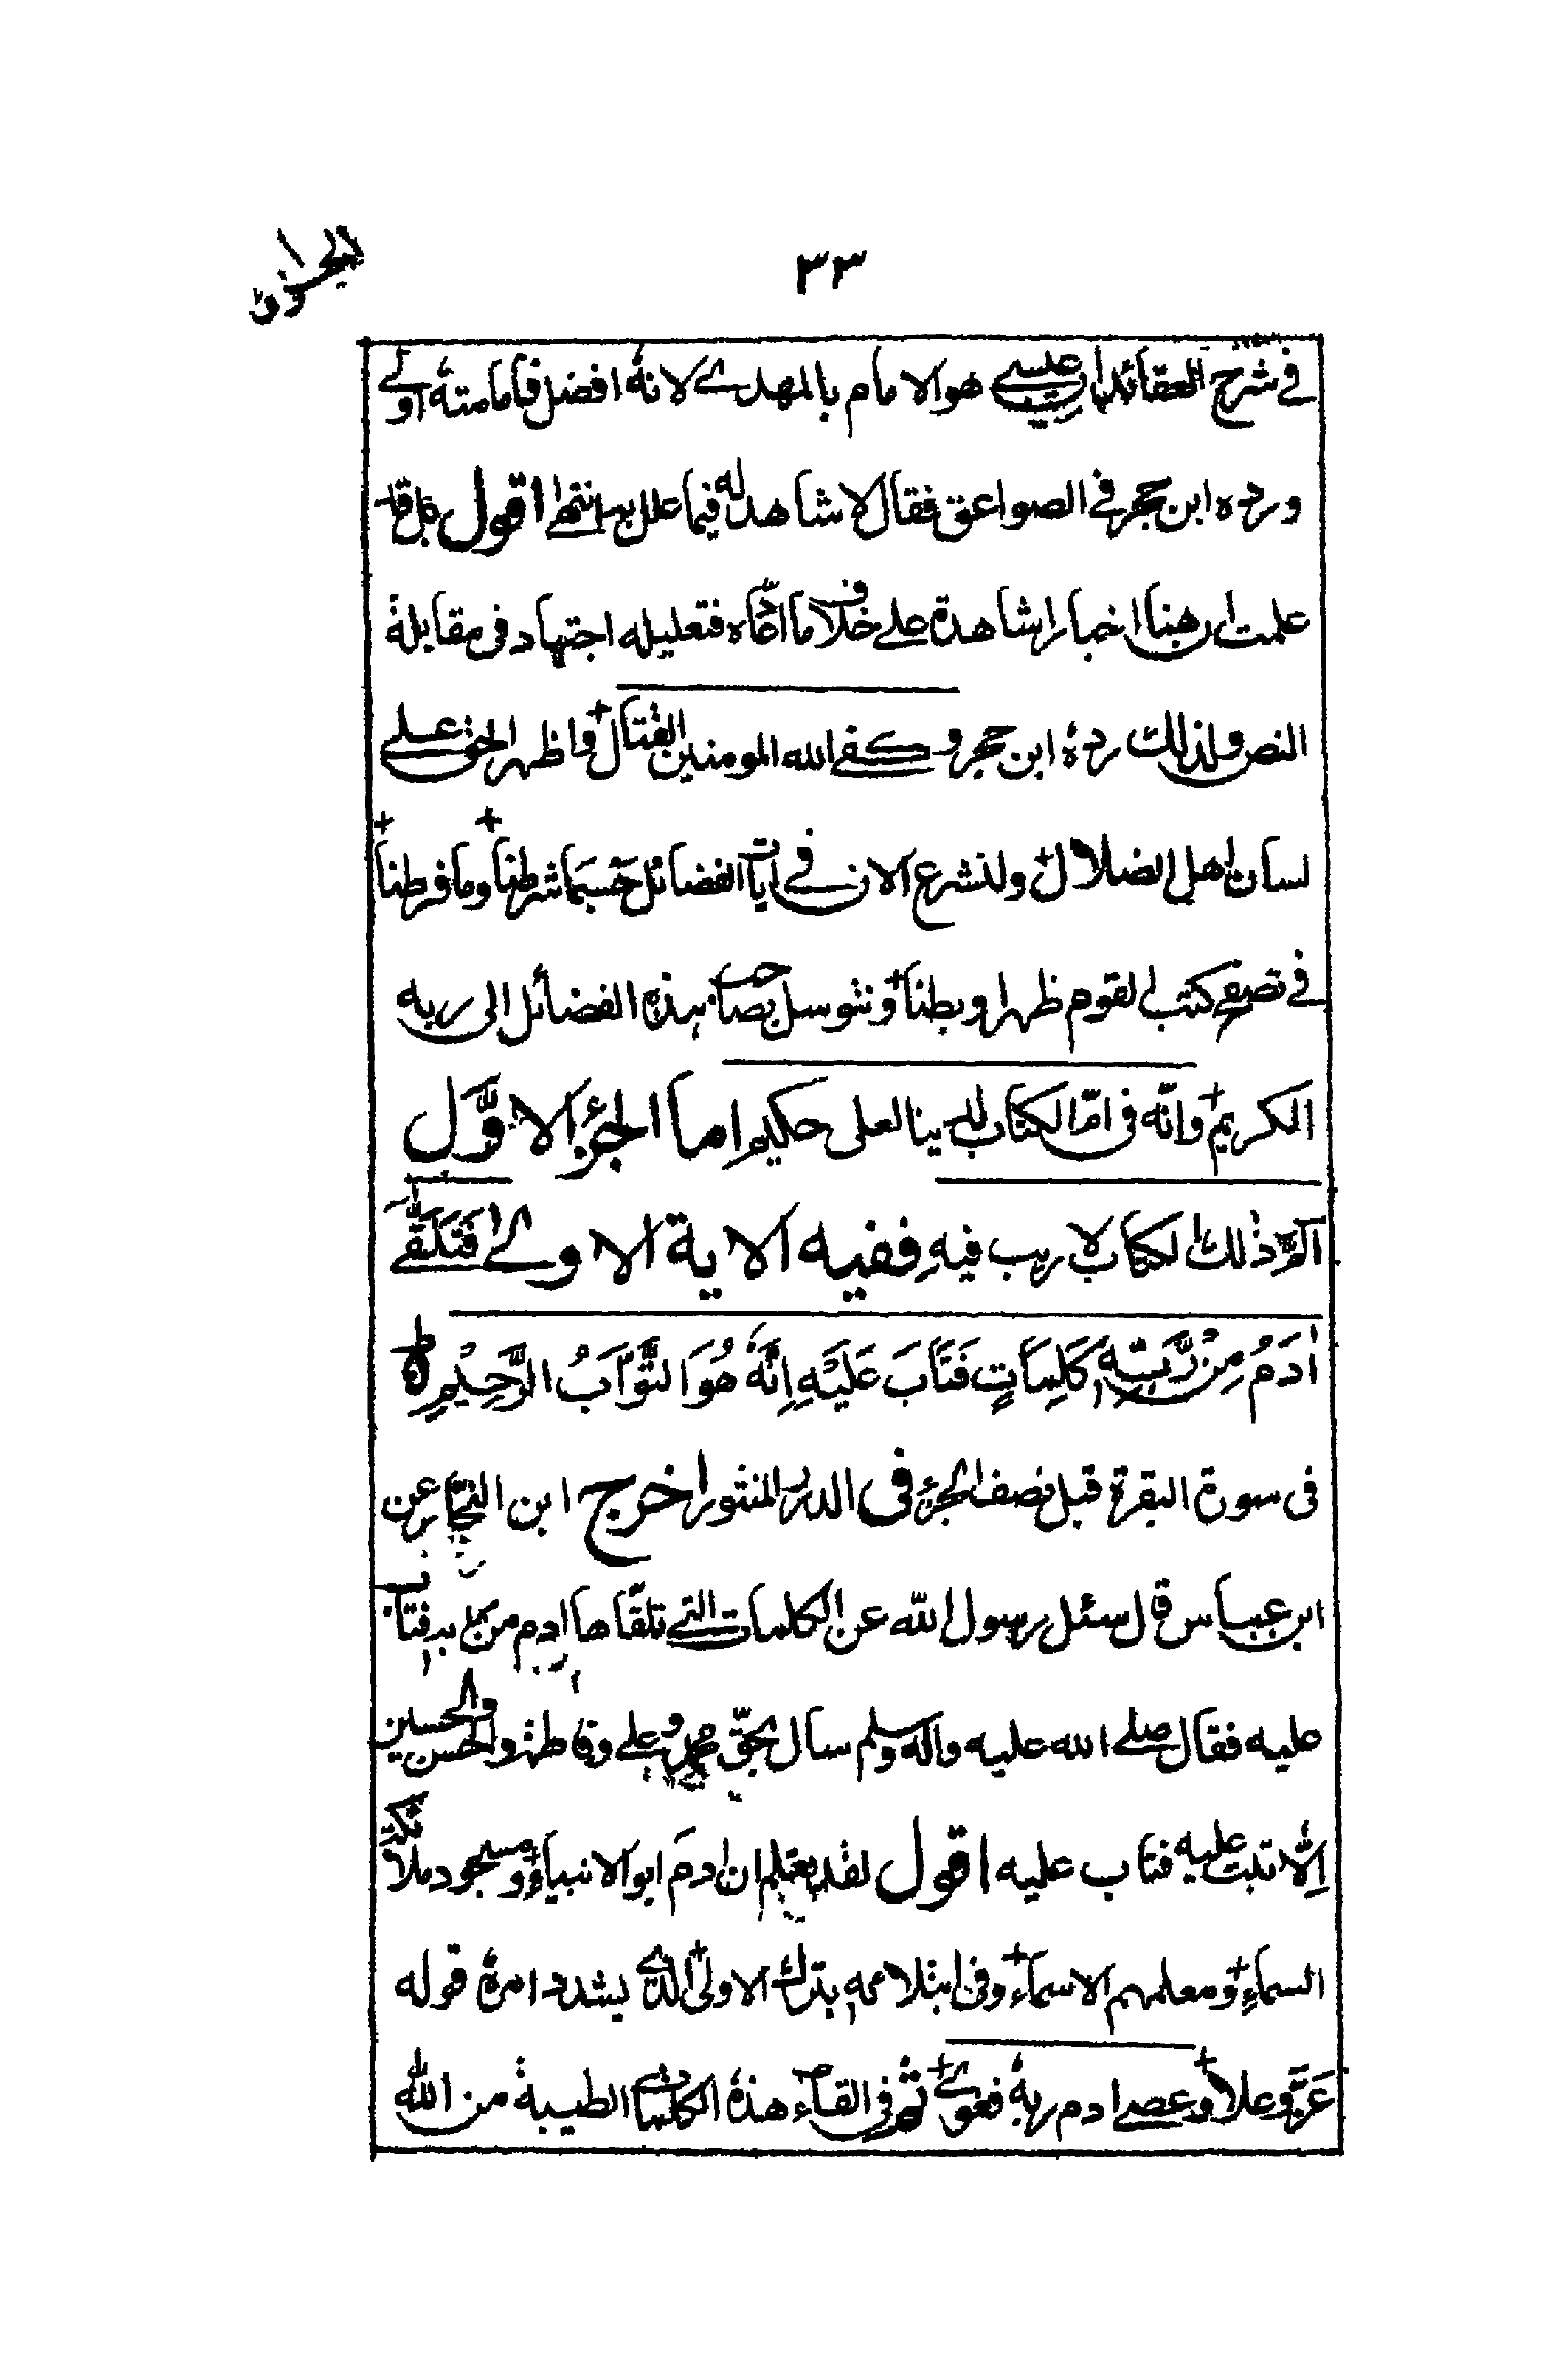 ٣٣
في شرح العقائد ان عيسى هو الامام بالمهدي لانه افضل فامامته اولى
ورده ابن حجر في الصواعق فقال لا شاهد له فيما علل به انتهى اقول بل قد
علمت ان هنا اخبارا شاهدة على خلاف ما ادّعاه فتعليله اجتهاد في مقابلة
النص ولذلك رده ابن حجر وكفى الله المومنين القتال واظهر الحق على
لسان اهل الضلال ولنشرع الان في ايات الفضائل حسبما شرطنا وما فرطنا
في تصفح كتب القوم ظهرا وبطنا ونتوسل بصاحب هذه الفضائل الى ربه
الكريم وانّه في امّ الكتاب لدينا لعلى حكيم اما الجزء الاوّل
الٓمّ ذٰلك الكتاب لا ريب فيه ففيه الاية الاولى فَتَلَقّٰى
اٰدَمُ مِنْ رَّبِّه كَلِمَاتٍ فَتَابَ عَلَيْهِ اِنَّهُ هُوَ التَّوَّابُ الرَّحِيْم
في سورة البقرة قبل نصف الجزء في الدر المنثور اخرج ابن النجّار عن
ابن عباس قال سئل رسول الله عن الكلمات التي تلقّاها ادم من ربه فتاب
عليه فقال صلى الله عليه واٰله وسلم سال بحقّ محمد وعلي وفاطمة والحسن والحسين
اِلّا تبت عليه فتاب عليه اقول لقد يعلم ان ادم ابو الانبياء ومسجود ملائكة
السماء ومعلمهم الاسماء وفي ابتلائه بترك الاولى الذي يشدد امره قوله
عَزَّ وعلا وعصى ادم ربه فغوى ثم في القاء هذه الكلمات الطيبة من الله